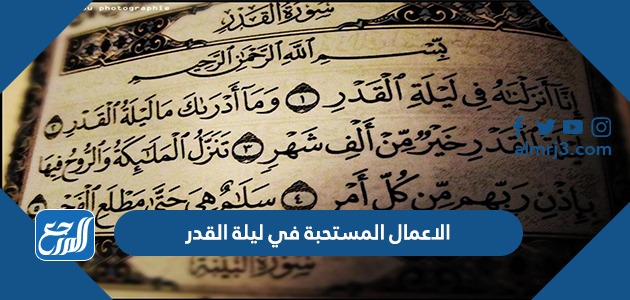 photographie
سُورَةُ القَدْرِ
بِسْمِ اللَّهِ الرَّحْمَٰنِ الرَّحِيمِ
إِنَّا أَنزَلْنَٰهُ فِى لَيْلَةِ ٱلْقَدْرِ ١ وَمَآ أَدْرَىٰكَ مَا لَيْلَةُ ٱلْقَدْرِ ٢
ٱلْقَدْرِ خَيْرٌ مِّنْ أَلْفِ شَهْرٍ ٣ تَنَزَّلُ ٱلْمَلَٰٓئِكَةُ وَٱلرُّوحُ فِيهَا
بِإِذْنِ رَبِّهِم مِّن كُلِّ أَمْرٍ ٤ سَلَٰمٌ هِىَ حَتَّىٰ مَطْلَعِ ٱلْفَجْرِ ٥
almrj3.com
المرجع
الاعمال المستحبة في ليلة القدر
سُورَةُ البَيِّنَةِ